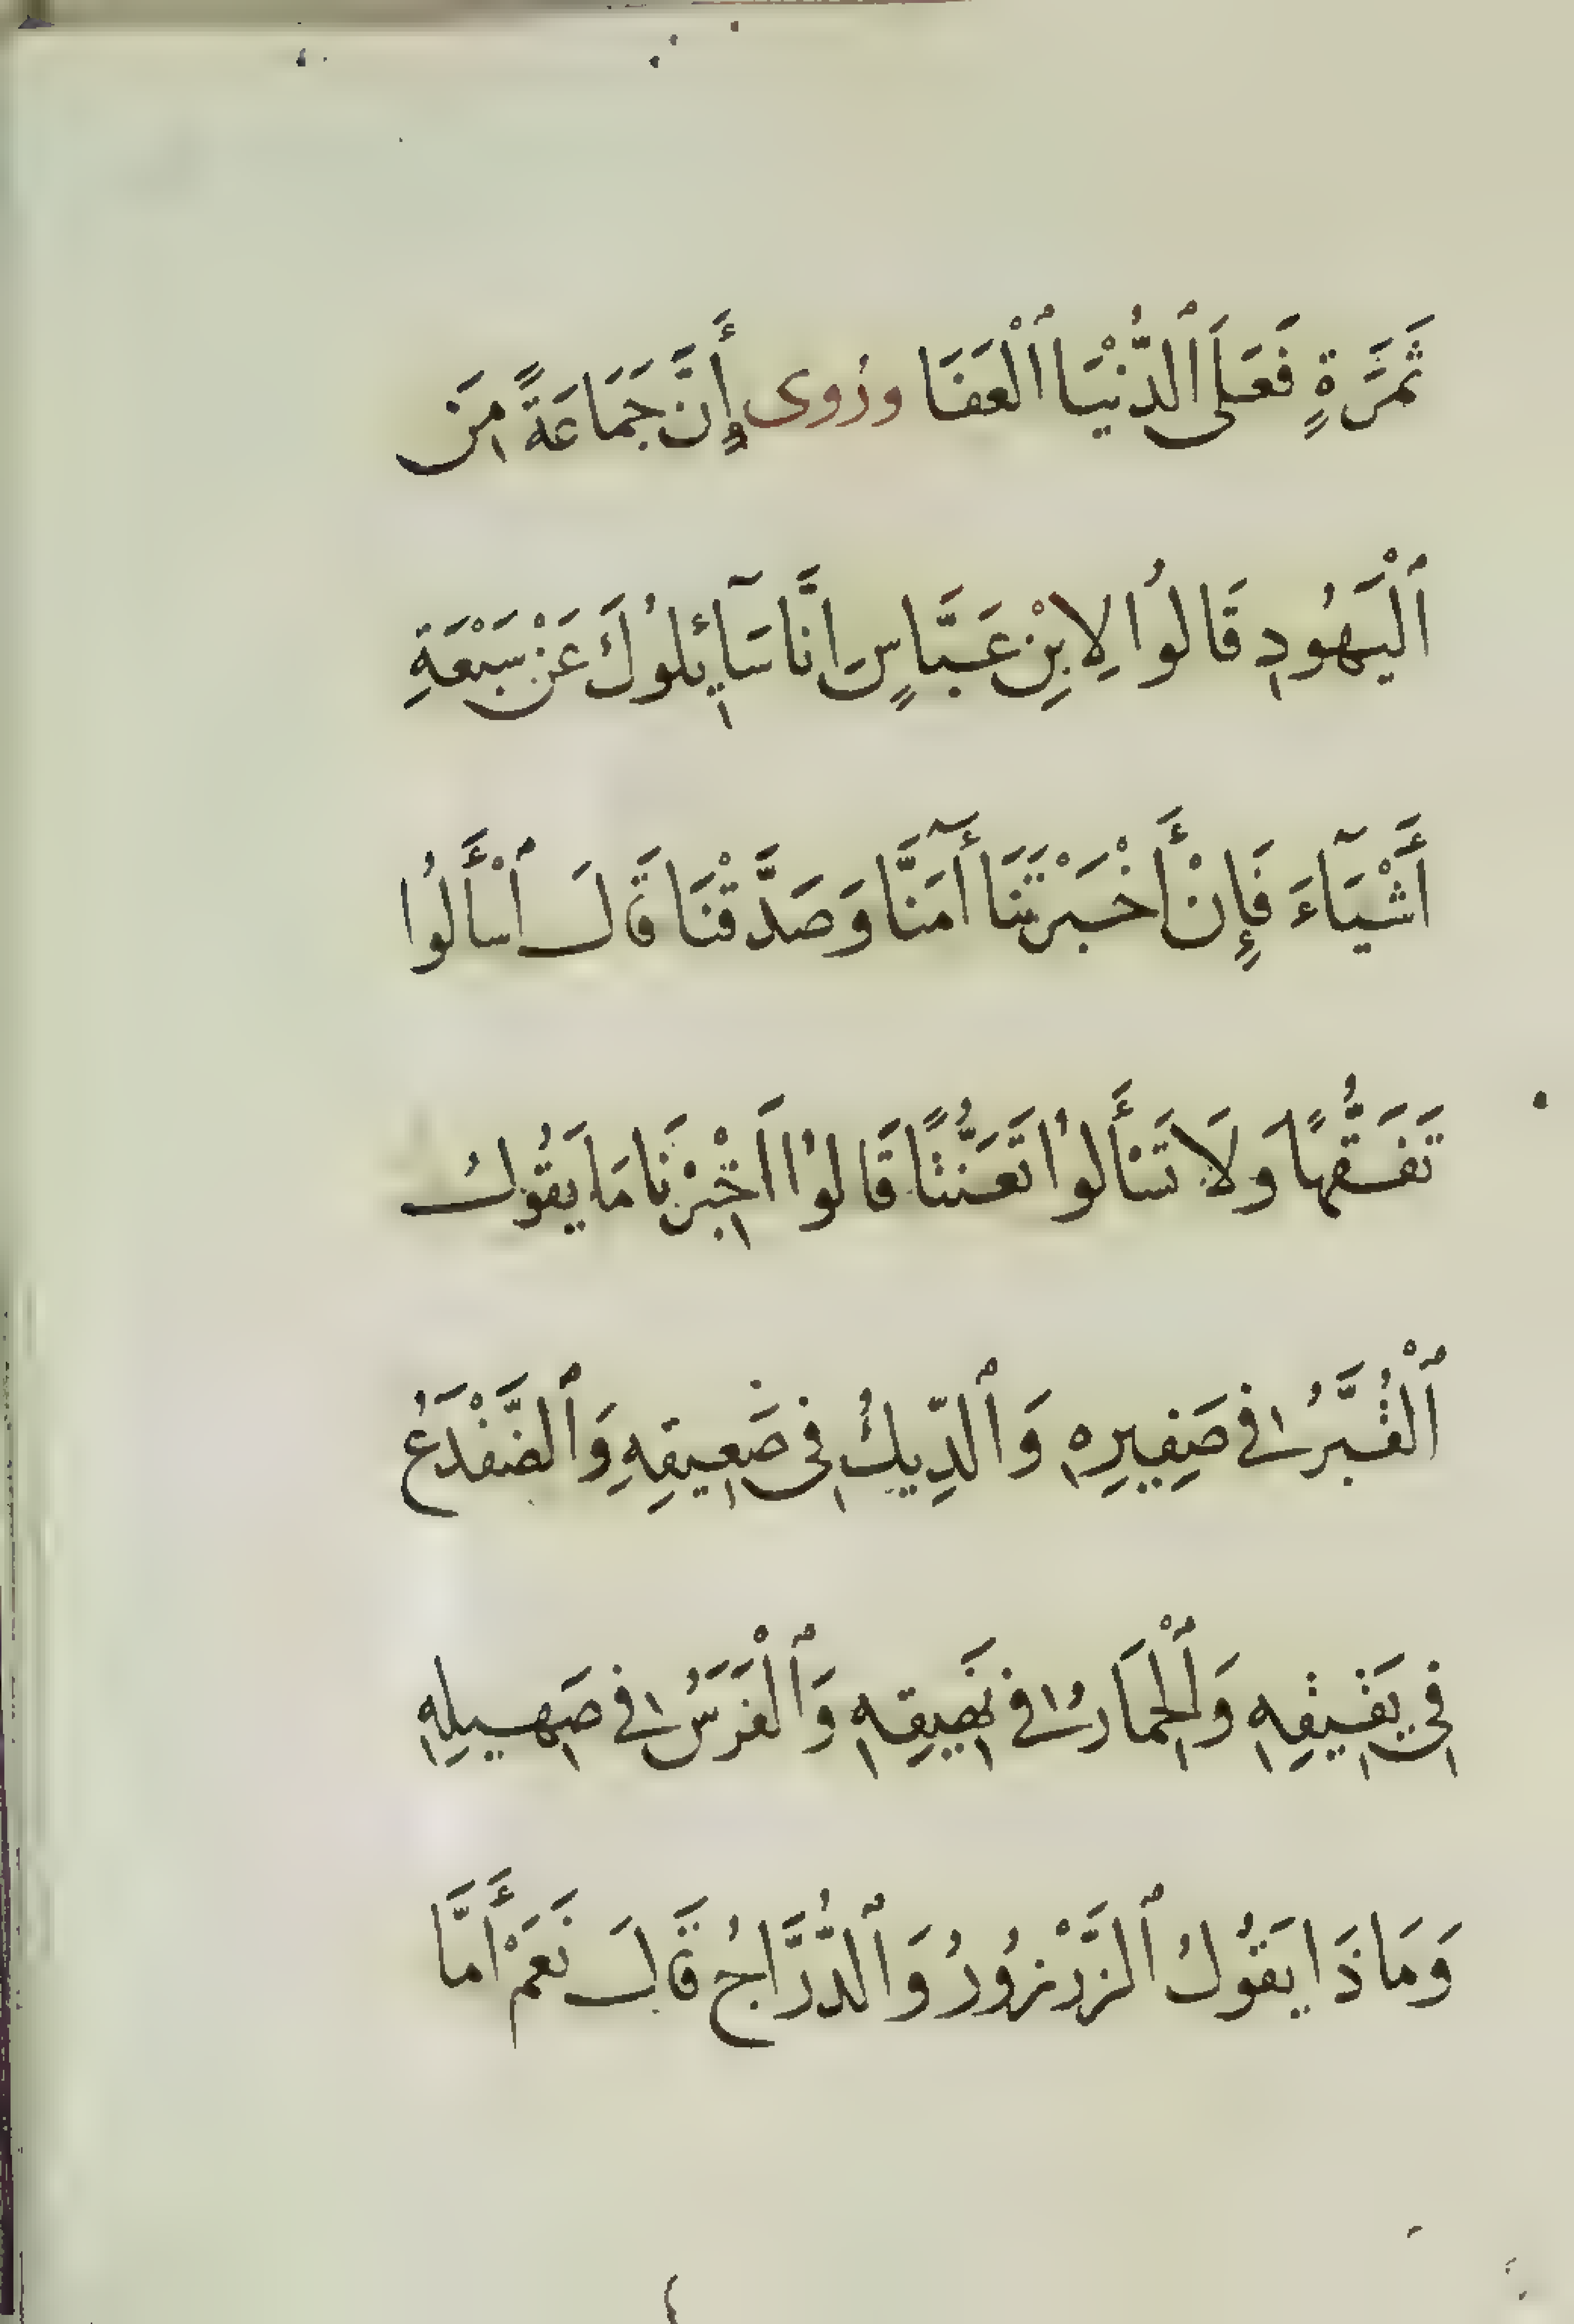 ثَمَرَةٍ فَعَلَى ٱلدُّنْيَا ٱلْعَفَا وَرُوِى أَنَّ جَمَاعَةً مِنَ
ٱلْيَهُودِ قَالُوا لِابْنِ عَبَّاسٍ اِنَّا سَآئِلُوكَ عَنْ سَبْعَةِ
أَشْيَآءَ فَإِنْ أَخْبَرْتَنَا أٓمَنَّا وَصَدَّقْنَا قَالَ ٱسْأَلُوا
تَفَقُّهًا وَلَا تَسْأَلُوا تَعَنُّتًا قَالُوا اَخْبِرْنَا مَا يَقُولُ
ٱلْقُبَّرُ فِى صَفِيرِهِ وَٱلدِّيكُ فِى ضَعِيقِهِ وَٱلضَّفْدَعُ
فِى نَقِيقِهِ وَٱلْحِمَارُ فِى نَهِيقِهِ وَٱلْفَرَسُ فِى صَهِيلِهِ
وَمَا ذَا يَقُولُ ٱلزَّرْزُورُ وَٱلدُّرَّاجُ قَالَ نَعَمْ أَمَّا